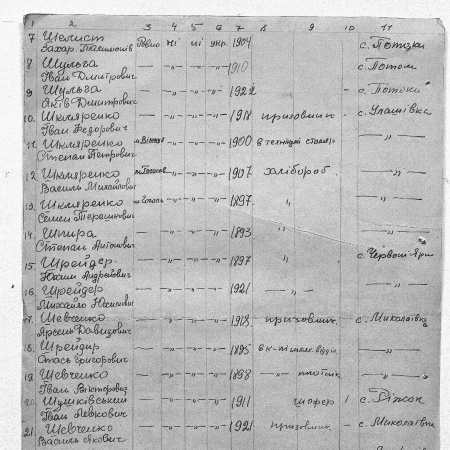 1 2 3 4 5 6 7 8 9 10 11
7 Шелист ні ні укр. 1904 с. Потоки
Захар
8 Шульга -"- -"- -"- 1910 с. Потоки
Іван Дмитрович
9 Шульга -"- -"- -"- 1922 - с. Потоки
Яків Дмитрович
10. Шкляренко -"- -"- -"- 1918 призовник - с. Улашівка
Іван Федорович
11. Шкляренко -"- -"- -"- 1900 -"-
Степан Петрович
12. Шкляренко -"- -"- -"- 1907. хлібороб. -"-
Василь Михайлович
13. Шкляренко -"- -"- -"- 1897. " -"-
Семен Терешкович
14. Шпира -"- -"- -"- 1893 " -"-
Степан Антонович
15. Шрейдер -"- -"- -"- 1897 " с. Червоний Яр
Юхим Андрейович
16. Шрейдер -"- -"- -"- 1921 " - -"-
Михайло Юхимович
17. Шевченко -"- -"- -"- 1918. призовник. - с. Миколаївка
Арсень Давидович
18. Шрейдир -"- -"- -"- 1895 -"-
Стась Григорович
19. Шевченко -"- -"- -"- 1898 -"- плотнік -"-
Іван Вікторович
20. Шушківський -"- -"- -"- 1911 шофер 1 с.
Іван Левкович
21. Шевченко -"- -"- -"- 1921 призовник. - с. Миколаївка
Василь Якович